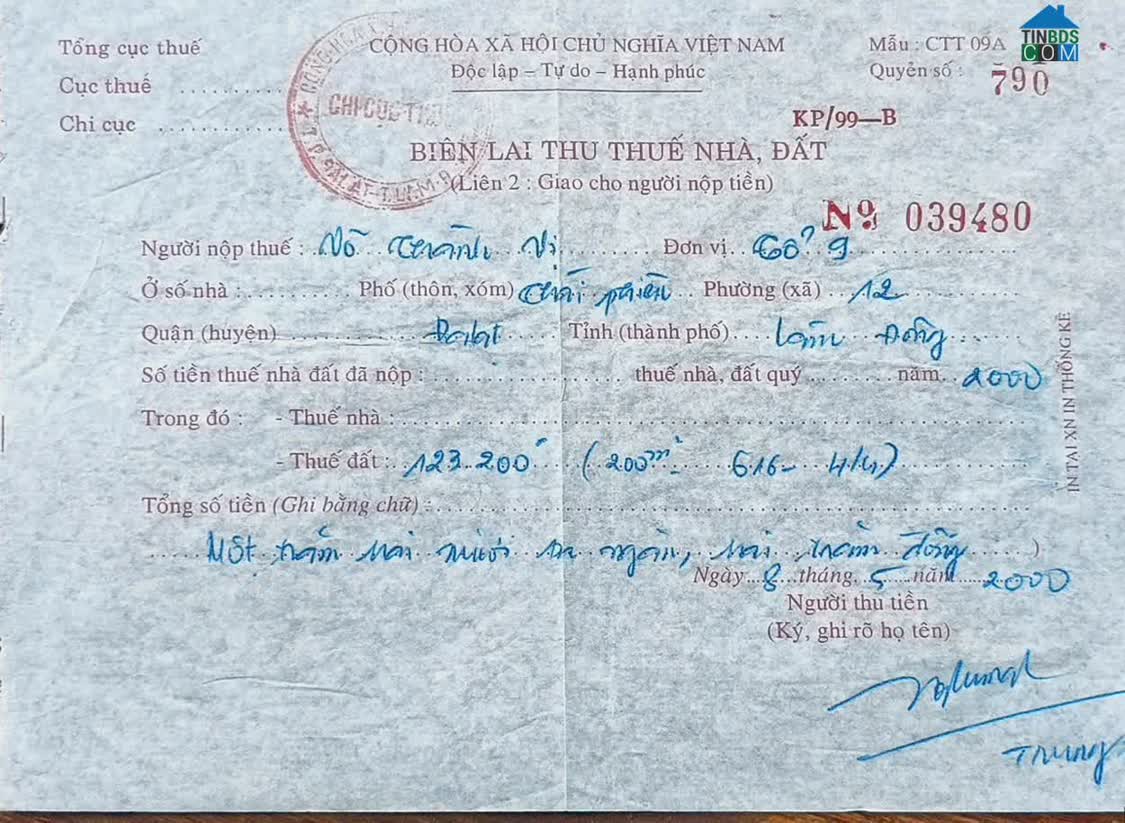 TINBDS
COM
Tổng cục thuế
CỘNG HÒA XÃ HỘI CHỦ NGHĨA VIỆT NAM
Mẫu : CTT 09A
Cục thuế ..........
Độc lập - Tự do - Hạnh phúc
Quyển số : 790
Chi cục ..........
CHI CỤC THUẾ
KP/99—B
BIÊN LAI THU THUẾ NHÀ, ĐẤT
(Liên 2 : Giao cho người nộp tiền)
Nº 039480
Người nộp thuế : Võ Thành Vi Đơn vị Tổ 9
Ở số nhà : .......... Phố (thôn, xóm) Thái phiên Phường (xã) 12
Quận (huyện) Đalat Tỉnh (thành phố) Lâm Đồng
Số tiền thuế nhà đất đã nộp : .......... thuế nhà, đất quý .......... năm 2000
Trong đó : - Thuế nhà : ..........
- Thuế đất : 123.200đ (200m² 616- 4/4)
Tổng số tiền (Ghi bằng chữ) : ..........
Một trăm hai mươi ba ngàn, hai trăm đồng )
Ngày 8 tháng 5 năm 2000
Người thu tiền
(Ký, ghi rõ họ tên)
Trung
IN TẠI XN IN THỐNG KÊ